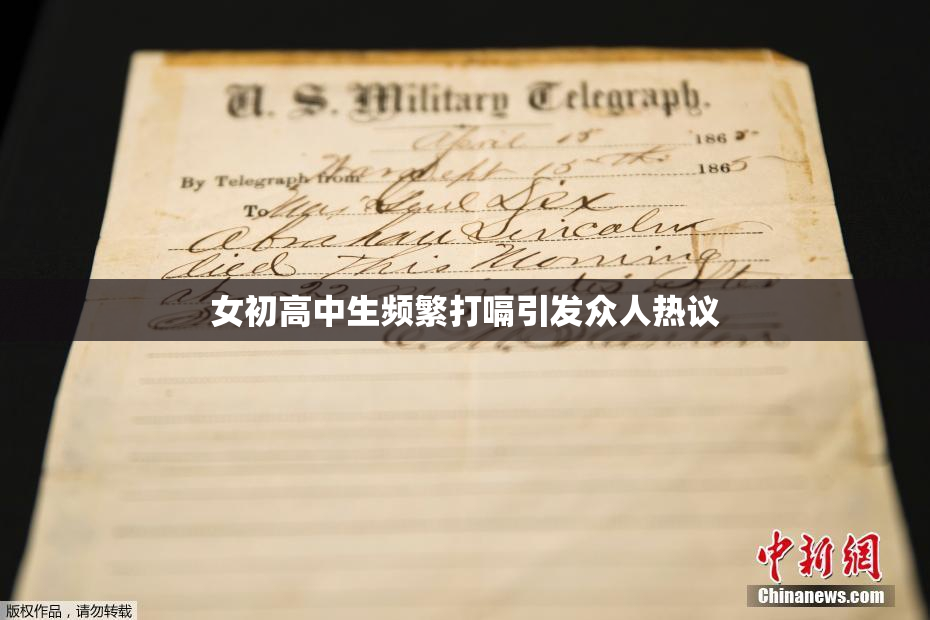 U. S. Military Telegraph.
April 15 1865
By Telegraph from War Dept 15th 1865
To Maj Genl Dix
Abraham Lincoln
died This Morning
at 22 minutes after
女初高中生频繁打嗝引发众人热议
E. M. Stanton
中新網
Chinanews.com
版权作品,请勿转载